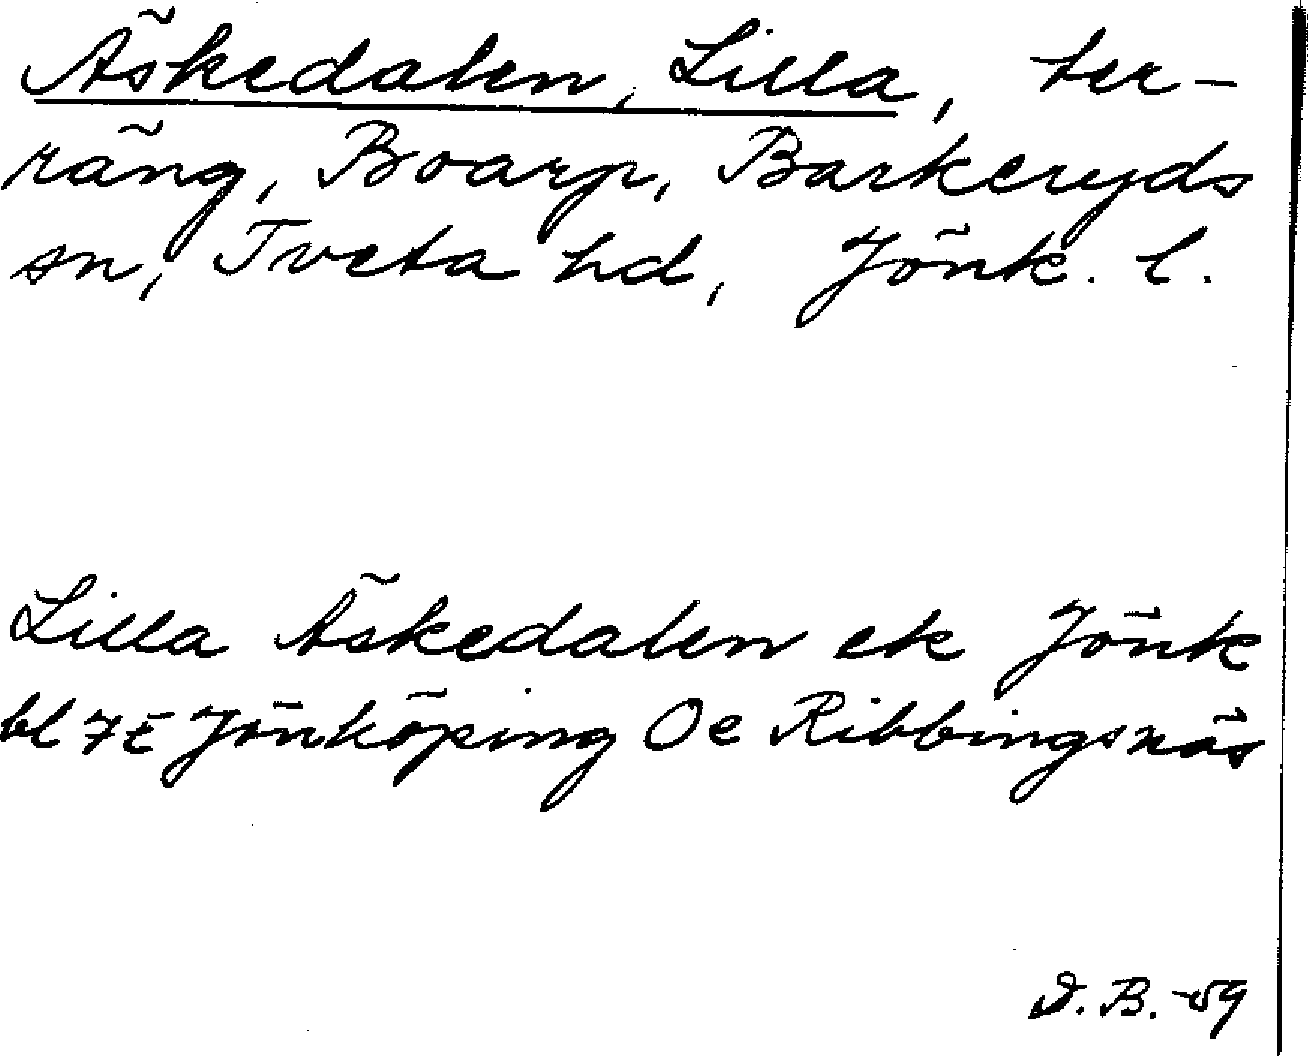 Äskedalen, Lilla, ter-
räng, Boarp, Barkeryds
sn, Tveta hd, Jönk. l.
Lilla Äskedalen ek Jönk
bl 7E Jönköping Oe Ribbingsnäs
D. B. -59